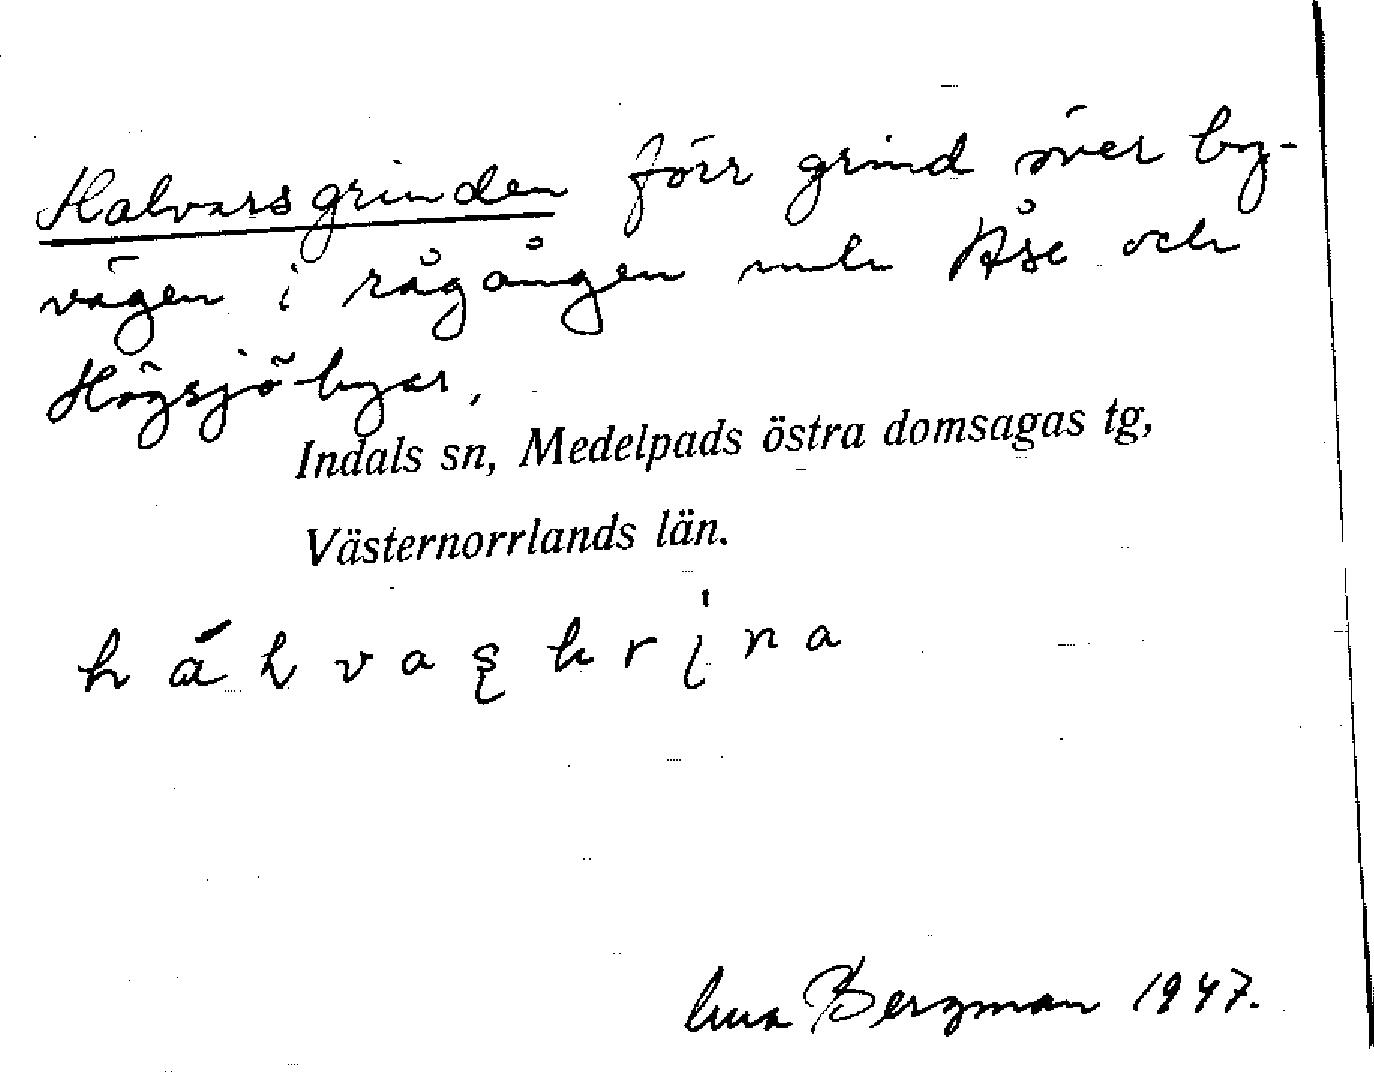 Halvarsgrinden förr grind över by-
vägen i rågången mln Åse och
Högsjö byar.
Indals sn, Medelpads östra domsagas tg,
Västernorrlands län.
Bergman 1947.